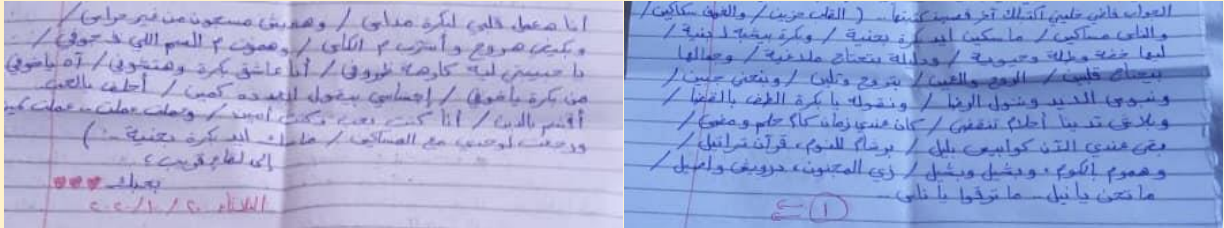 الجواب فاضي خليني أكتبلك آخر قصيدة كتبتها... ( القلب حزين / والعيون سكاكين /
والناس مساكين / ماسكين ايد بكرة بعنية / وبكرة
ليها خفة وطلة وحيوية / ودليلة بتحتاج ملاغية / وجمالها
بيحتاج قلبين / الروح والعين / بتروح وتلين / وبتغني حنين /
ونبوس الديد ونقول الرضا / ونقوله يا بكرة الطف بالقضا /
وبلاش تدينا أحلام تتقضى / كان عندي زمان كام حلم ومضى /
بقى عندي الآن كوابيس بليل / برشام للنوم، قرآن تراتيل /
وهموم بالكوم، وبشيل وبشيل / زي المجنون، درويش وأصيل /
ما تحن يا نيل... ما تروقوا يا ناس...
١
أنا هعمل قلبي لبكرة مداس / وهعيش مسجون من غير حراس /
وبكيفي هروح وأشرب م الكاس / وهموت م السم اللي ف جوفي /
يا حبيبتي ليه كارهة ظروفي / أنا عاشق بكرة وهتشوفي / آه ياخوفي
من بكرة ياخوفي / إحساسي بيقول كمين / أحلف بالعين
أقسم بالدين / أنا كنت بحب وكنت أمين / وعملت عملت عملت كتير
ورجعت لوحدي مع المساكين / ماسك ايد بكرة بعنية.. )
إلى لقاء قريب،
بحبك
الثلاثاء